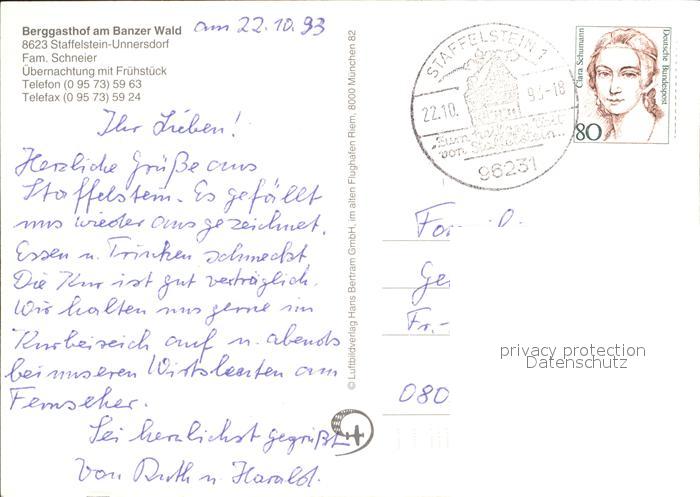 Berggasthof am Banzer Wald
8623 Staffelstein-Unnersdorf
Fam. Schneier
Übernachtung mit Frühstück
Telefon (0 95 73) 59 63
Telefax (0 95 73) 59 24
am 22.10.93
Ihr Lieben!
Herzliche Grüße aus
Staffelstein. Es gefällt
uns wieder ausgezeichnet.
Essen u. Trinken schmeckt.
Die Kur ist gut verträglich.
Wir halten uns gerne im
Kurbereich auf u. abends
bei unseren Wirtsleuten am
Fernseher.
Sei herzlichst gegrüßt
von Ruth u. Harald.
© Luftbildverlag Hans Bertram GmbH, im alten Flughafen Riem, 8000 München 82
STAFFELSTEIN 1
22.10. 93-18
von Staffelstein...
96231
Clara Schumann
Deutsche Bundespost
80
For D.
Ge
Fr.-
080
privacy protection
Datenschutz